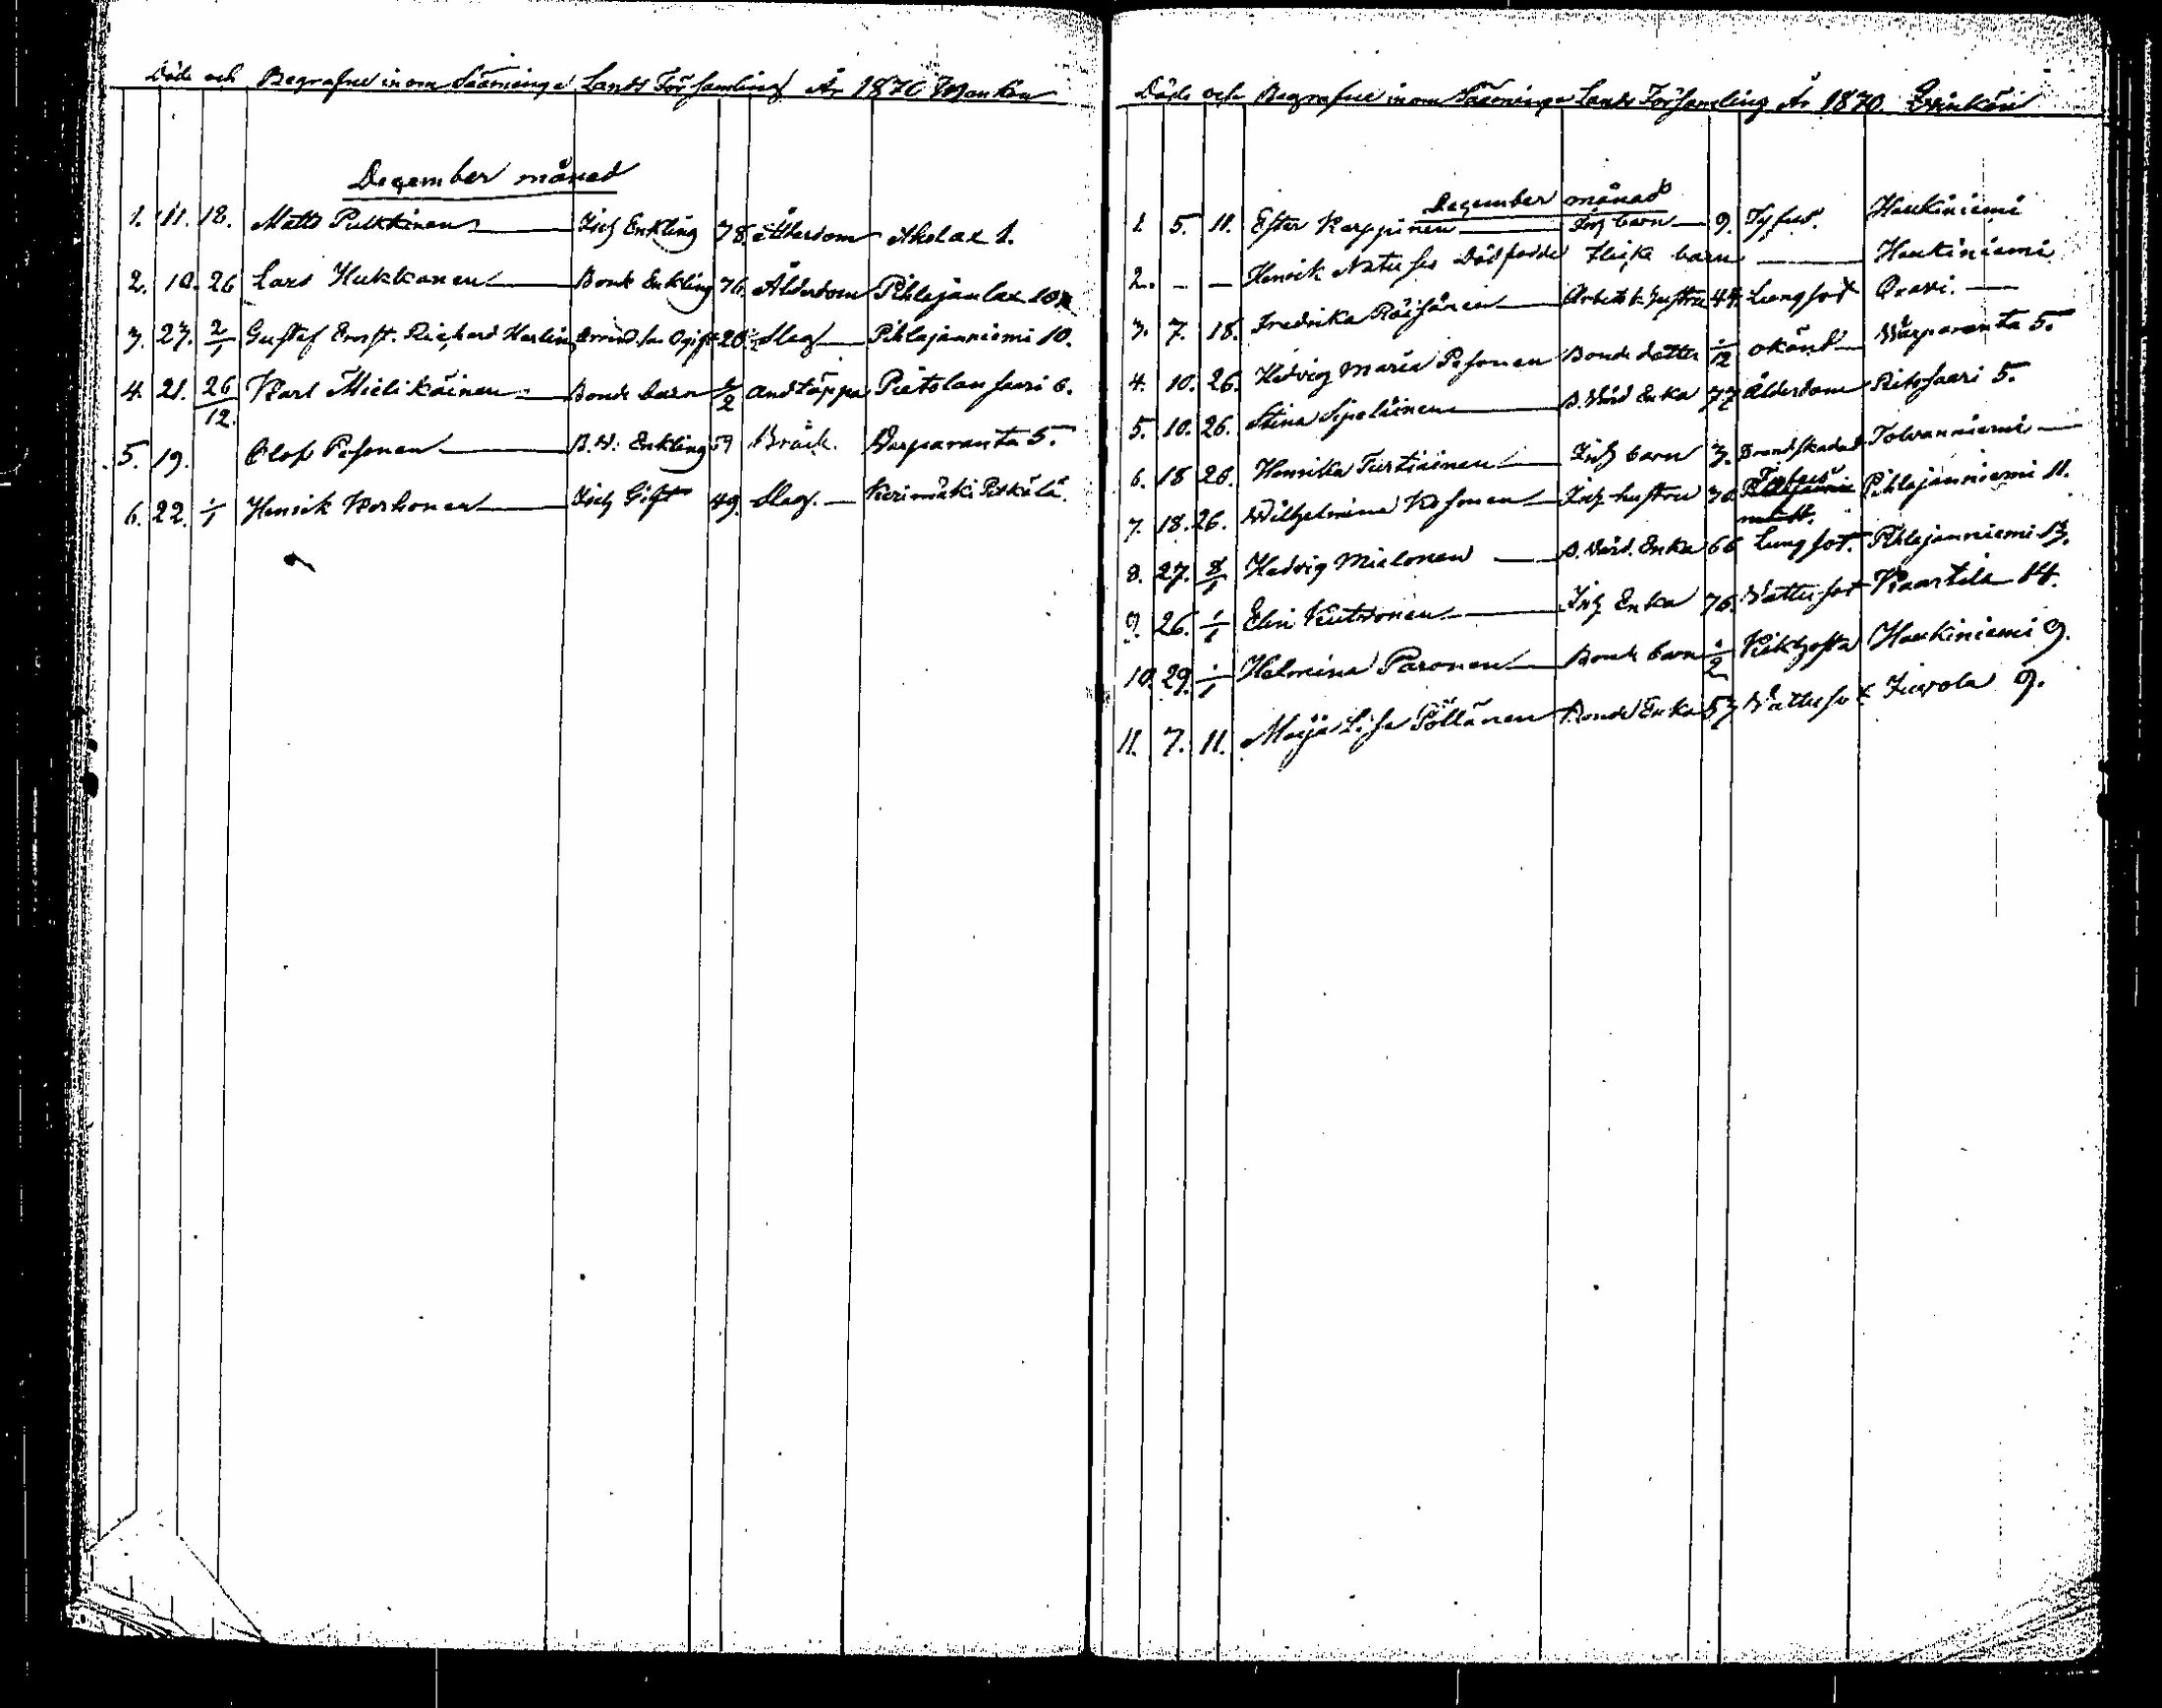 Döde och Begrafne inom Sääminge Lands Församling År 1870 Mankön
December månad
1. 11. 18. Matts Pulkkinen Inh Enkling 78. Ålderdom Aholax 1.
2. 10. 26 Lars Hukkanen Bonde Enkling 76. Ålderdom Pihlajanlax 10
3. 27. 2/1 Gustaf Ernst. Richard Harlin Ogift 20 Slag Pihlajanniemi 10.
4. 21. 26/12. Karl Mielikäinen Bonde barn 1/2 andtäppa Pietolansaari 6.
5. 19. Olof Pesonen B. W. Enkling 59 Bråck. Warparanta 5.
6. 22. 1/1 Henrik Korhonen Inh Gift 49. Slag. Kerimäki Pitkälä.
Döde och Begrafne inom Sääminge Lands Församling År 1870. Qvinkön
December månad
1. 5. 11. Ester Karppinen Inh barn 9. Tyfus. Haukiniemi
2. - - Henrik Dödfödde flicka barn Haukiniemi
3. 7. 18. Fredrika Räisänen Arbetsk. hustru 44. Lungsot Oravi.
4. 10. 26. Hedvig Maria Pesonen Bonde dotter 1/12 okänd Warparanta 5.
5. 10. 26. Stina Sipeläinen B. Wärd Enka 77 Ålderdom Ritosaari 5.
6. 18 26. Henrika Turtiainen Inh barn 3. Brandskadad Tolvanniemi
7. 18. 26. Wilhelmina Kosonen Inh hustru 30 Tyfus Pihlajanniemi 11.
8. 27. 8/1 Hedvig Mielonen B. Värd. Enka 66 Lungsot. Pihlajanniemi 13.
9. 26. 1/1 Elin Kutvonen Inh Enka 76. Vattusot Kaartila 14.
10. 29. 1/1 Helmina Paronen Bonde barn 1/2 Kikhosta Haukiniemi 9.
11. 7. 11. Maija Lisa Pöllänen Bonde Enka 57 Vattusot Juvola 9.